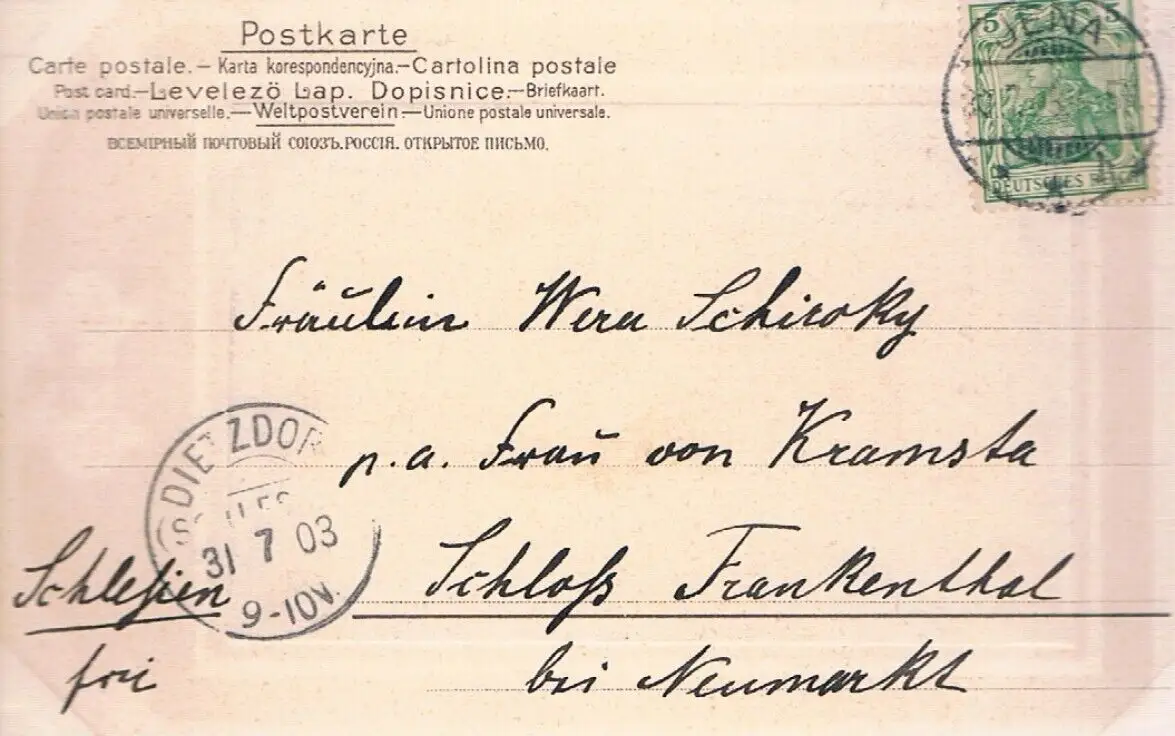 Postkarte
Carte postale.–Karta korespondencyjna.–Cartolina postale
Post card.–Levelezö Lap. Dopisnice.–Briefkaart.
Union postale universelle.–Weltpostverein–Unione postale universale.
ВСЕМІРНЫЙ ПОЧТОВЫЙ СОЮЗЪ.РОССІЯ. ОТКРЫТОЕ ПИСЬМО.
5 5
JENA
DEUTSCHES REICH
Fräulein Wera Schiroky
p.a. Frau von Kramsta
DIETZDORF
31 7 03
9-10V.
Schloß Frankenthal
Schlesien
bei Neumarkt
frei